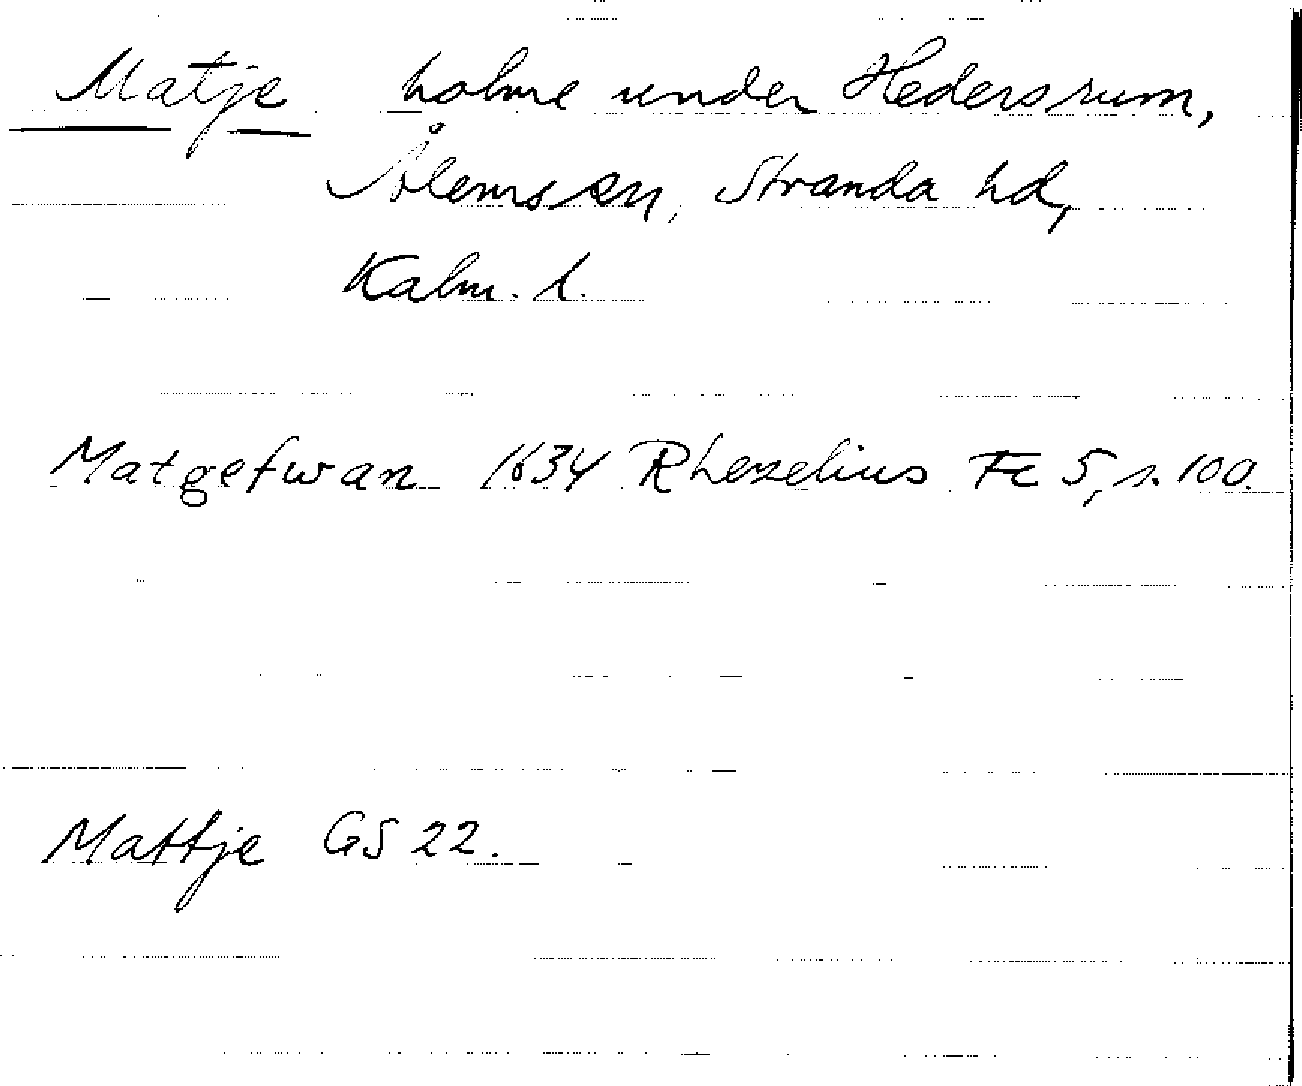 Matje holme under Hedersrum,
Ålems sn, Stranda hd,
Kalm. l.
Matgefwan 1634 Rhezelius Fc 5, s. 100.
Mattje GS 22.